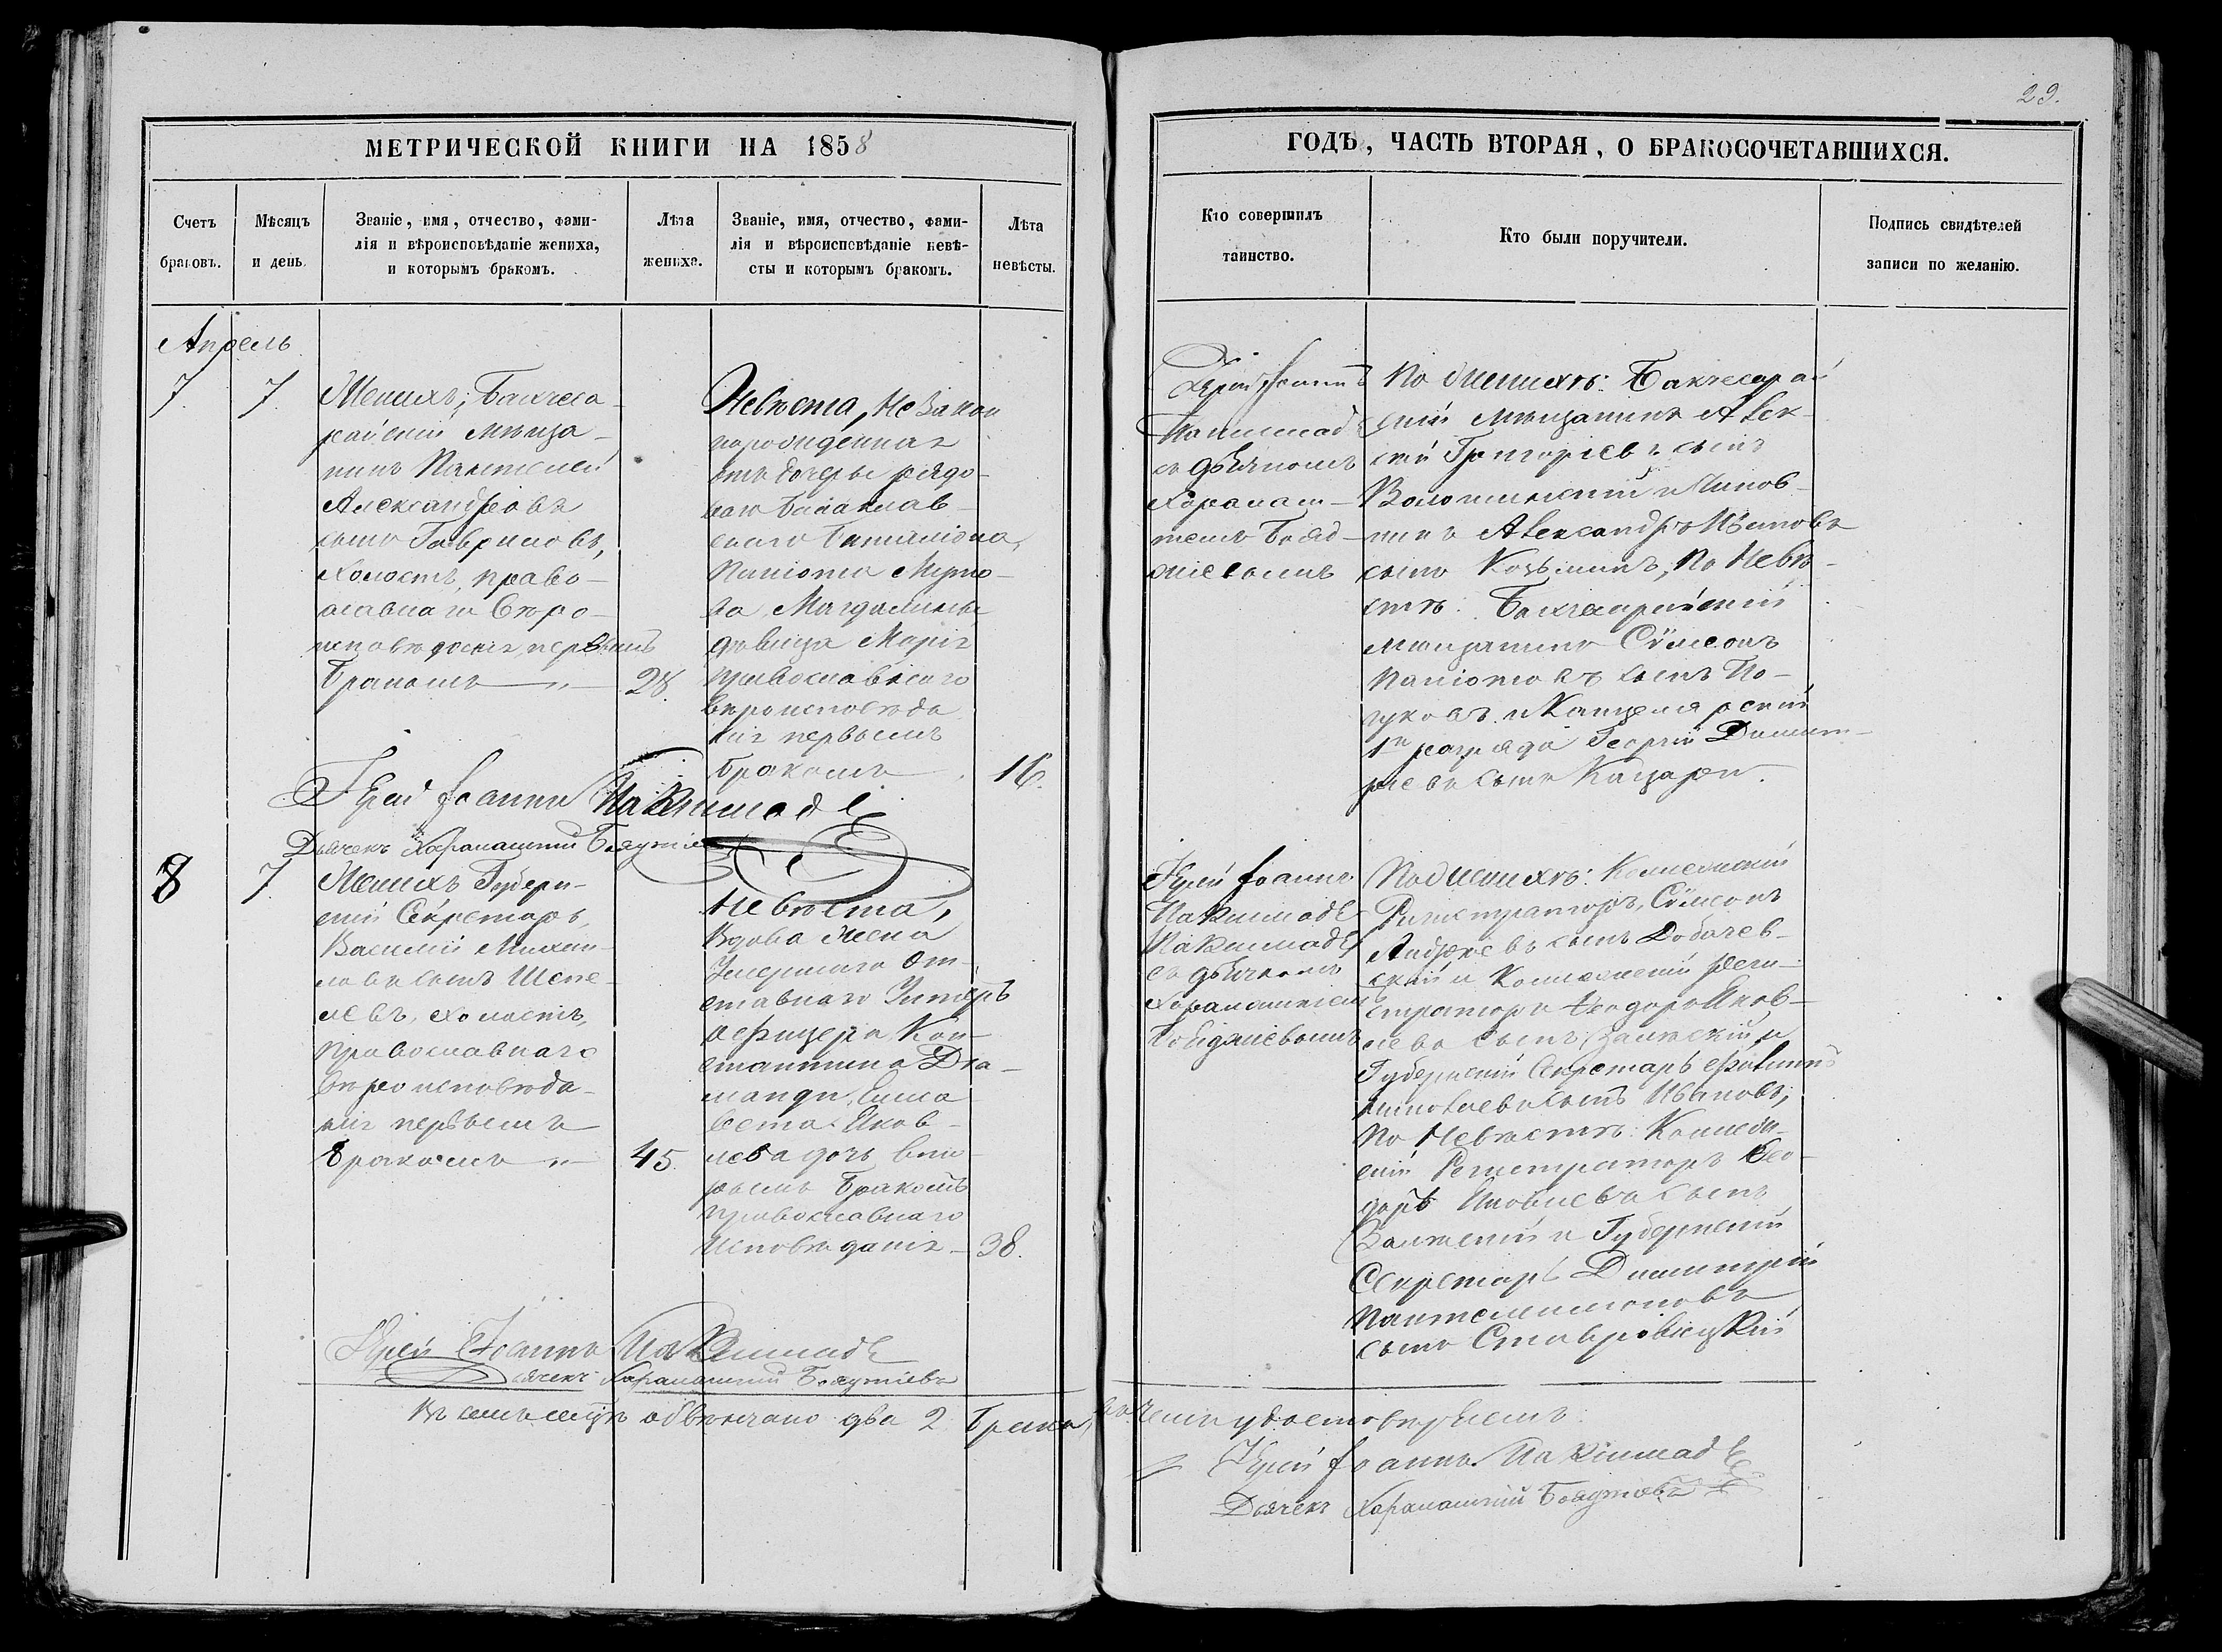 29.
МЕТРИЧЕСКОЙ КНИГИ НА 1858
ГОДЪ, ЧАСТЬ ВТОРАЯ, О БРАКОСОЧЕТАВШИХСЯ.
Счетъ
браковъ.
Мѣсяцъ
и день.
Званіе, имя, отчество, фами-
лія и вѣроисповѣданіе жениха,
и которымъ бракомъ.
Лѣта
жениха.
Званіе, имя, отчество, фами-
лія и вѣроисповѣданіе невѣ-
сты и которымъ бракомъ.
Лѣта
невѣсты.
Кто совершилъ
таинство.
Кто были поручители.
Подпись свидѣтелей
записи по желанію.
Апрель
7. 7.
Женихъ, Бахчеса-
райскій мѣща-
нинъ Пантелей
Александровъ
сынъ Гавриловъ,
холостъ, право-
славнаго вѣро-
исповѣданія первымъ
бракомъ 28.
Невѣста, незакон
норожденная
отъ дочери рядо-
ваго Балаклав-
скаго баталіона,
дѣвица Марія
православнаго
вѣроисповѣда
нія первымъ
бракомъ 16.
Іерей Іоаннъ
съ дьячкомъ
По женихѣ: Бахчесарай
скій мѣщанинъ Алек-
сѣй Григорьевъ сынъ
Волошинскій и Чинов-
никъ Александръ
сынъ Козьминъ, По Невѣ-
стѣ: Бахчисарайскій
мѣщанинъ Сѵмеонъ
сынъ По-
пуковъ и Канцелярскій
1го разряда Георгій Димит-
ріевъ сынъ
Іерей Іоаннъ
Дьячекъ Харалампій
8 7.
Женихъ Губерн-
скій Секретарь,
Василій Михаи-
ловъ сынъ Шепе-
левъ, холостъ,
православнаго
вѣроисповѣда-
нія первымъ
бракомъ 45.
Невѣста,
Вдова жена
Умершаго от-
ставнаго Унтеръ
офицера Кон-
стантина Діа-
манди, Елиса
вета Яков-
лева дочь вто-
рымъ бракомъ
православнаго
исповѣданія 38.
Іерей Іоаннъ
съ дьячкомъ
По женихѣ: Коллежскій
Регистраторъ, Сѵмеонъ
Андреевъ сынъ Добачев-
скій и Коллежскій Реги-
страторъ Ѳеодоръ Яков-
левъ сынъ и
Губернскій Секретарь Филиппъ
сынъ Ивановъ;
по Невѣстѣ: Коллеж-
скій Регистраторъ Ѳео-
доръ Яковлевъ сынъ
и Губернскій
Секретарь Димитрій
Пантелеимоновъ
сынъ
Іерей Іоаннъ
Дьячекъ Харалампій
Въ семъ мцѣ обвѣнчано два 2 брака,
въ чемъ удостовѣряемъ
Іерей Іоаннъ
Дьячекъ Харалампій